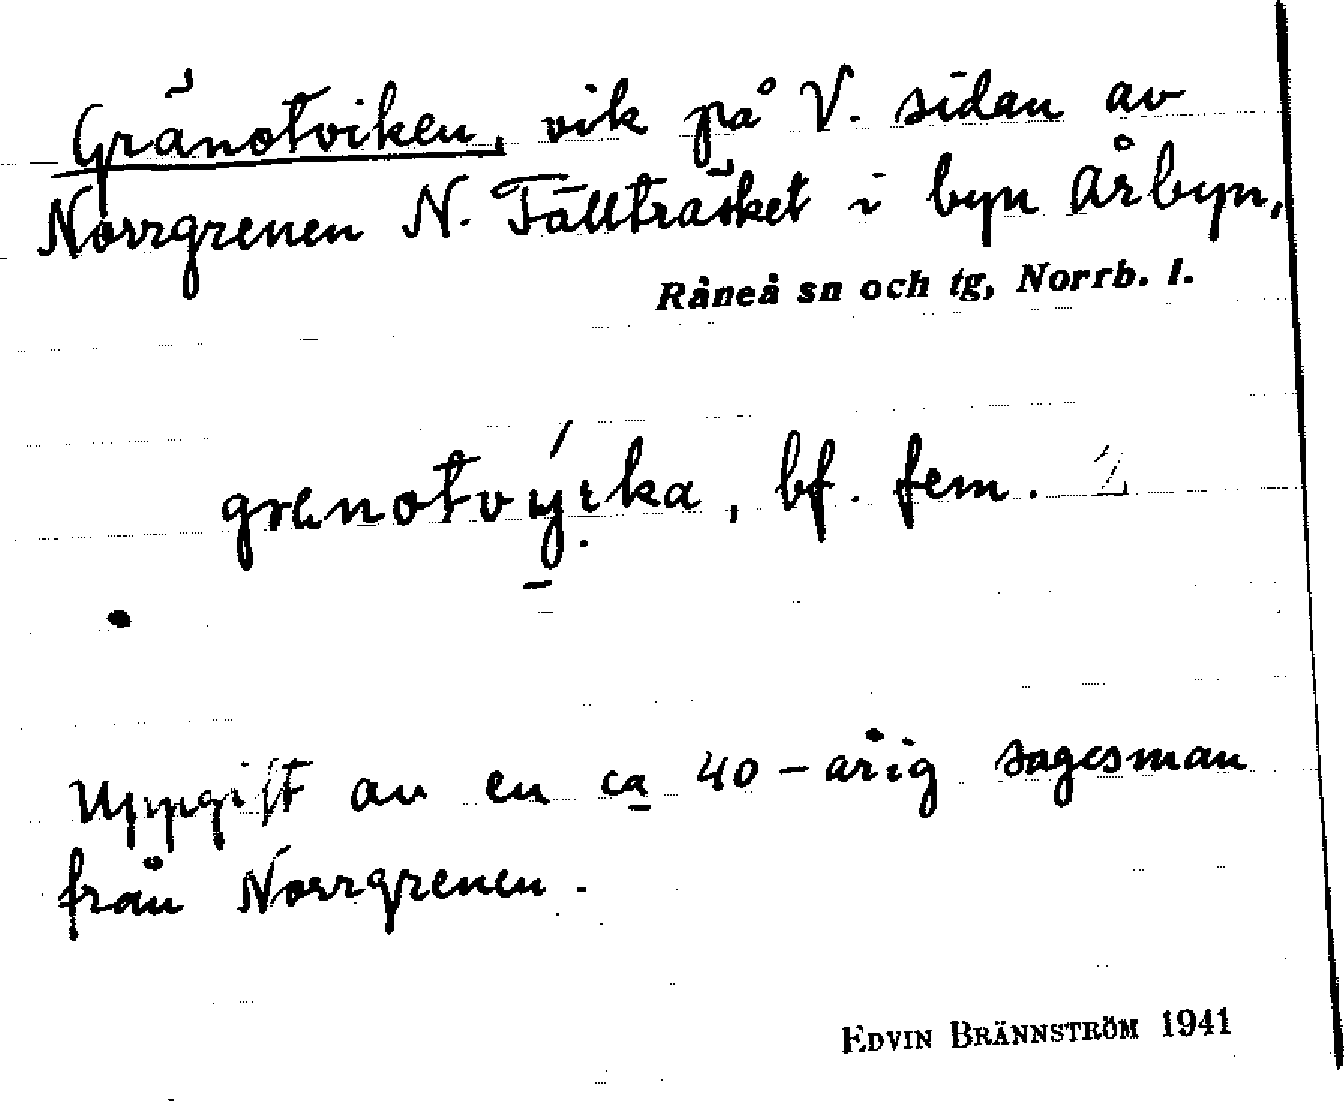 Gränotviken, vik på V. sidan av
Norrgrenen N. Fällträsket i byn Årbyn,
Råneå sn och tg, Norrb. l.
bf. fem. 2
Uppgift av en ca 40-årig sagesman
från Norrgrenen.
EDVIN BRÄNNSTRÖM 1941